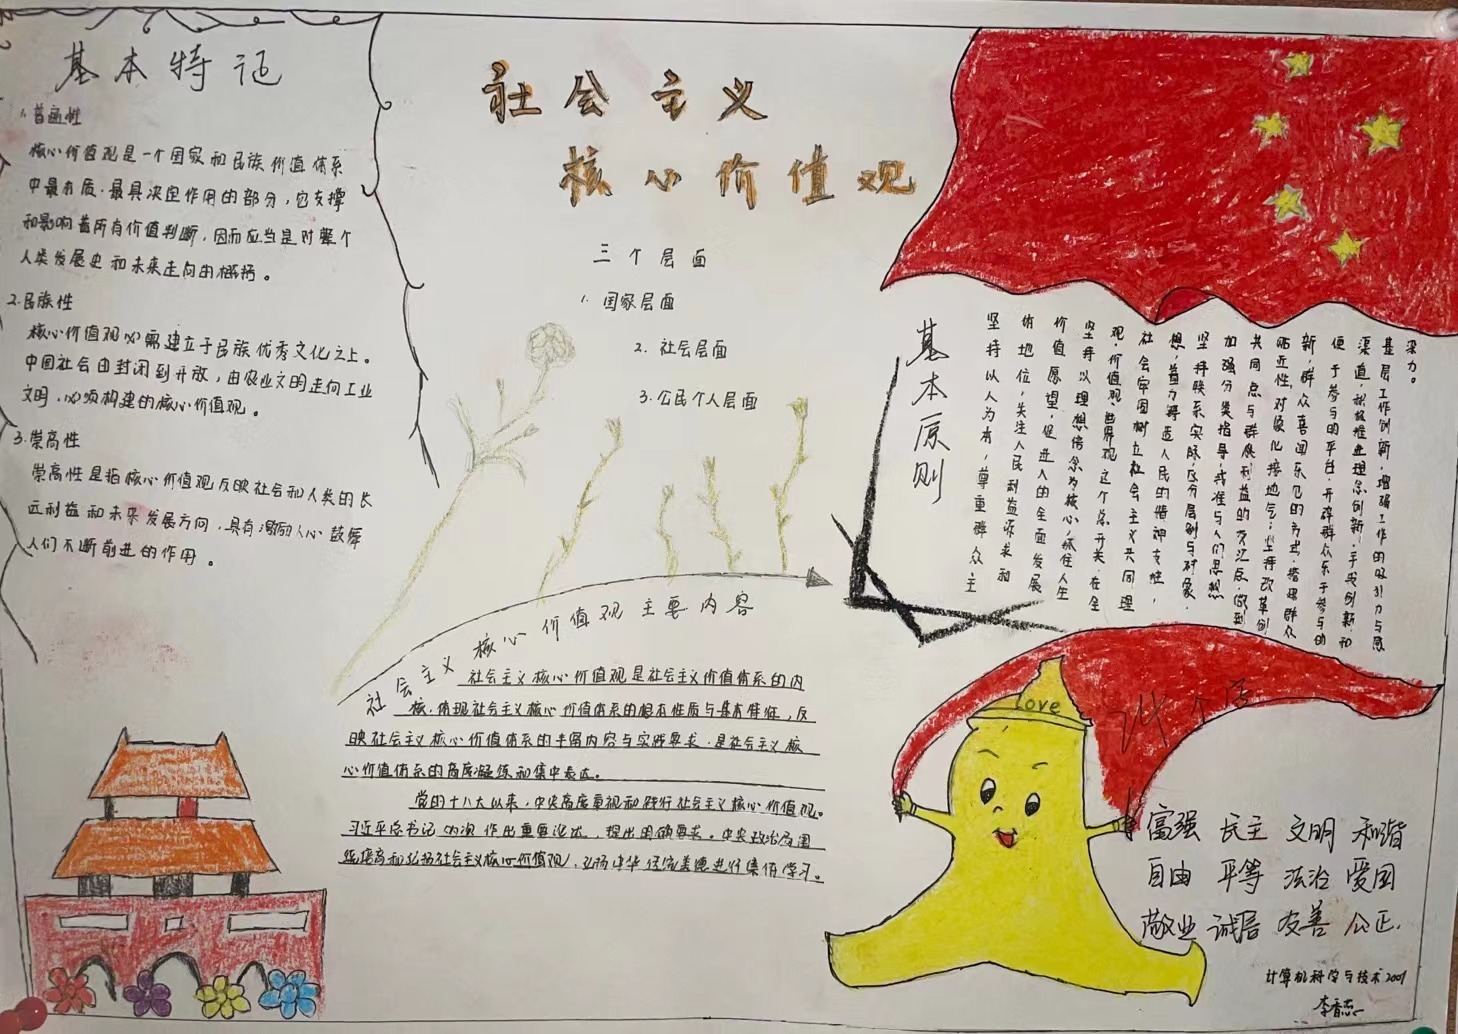 基本特征
1.普遍性
核心价值观是一个国家和民族价值体系
中最本质.最具决定作用的部分，它支撑
和影响着所有价值判断，因而应当是对整个
人类发展史和未来走向的概括。
2.民族性
核心价值观必需建立于民族优秀文化之上。
中国社会由封闭到开放，由农业文明走向工业
文明，必须构建的核心价值观。
3.崇高性
崇高性是指核心价值观反映社会和人类的长
远利益和未来发展方向，具有激励人心鼓舞
人们不断前进的作用。
社会主义
核心价值观
三个层面
1.国家层面
2.社会层面
3.公民个人层面
社会主义核心价值观主要内容
社会主义核心价值观是社会主义价值体系的内
核.体现社会主义核心价值体系的根本性质与基本特征，反
映社会主义核心价值体系的丰富内容与实践要求.是社会主义核
心价值体系的高度凝练和集中表达。
党的十八大以来，中央高度重视和践行社会主义核心价值观。
习近平总书记多次作出重要论述，提出明确要求。中央政治局围
绕培育和弘扬社会主义核心价值观，弘扬中华传统美德进行集体学习。
基本原则
坚持以人为本，尊重群众主
体地位，关注人民利益诉求和
价值愿望，促进人的全面发展
坚持以理想信念为核心，抓住人生
观.价值观.世界观这个总开关.在全
社会牢固树立社会主义共同理
想，着力铸造人民的精神支柱，
坚持联系实际，区分层别与对象.
加强分类指导，找准与人们思想
共同点与群众利益的交汇点.做到
贴近性.对象化.接地气；坚持改革创
新，群众喜闻乐见的方式.搭建群众
便于参与的平台.开辟群众乐于参与的
渠道.积极推进理念创新.手段创新和
基层工作创新.增强工作的吸引力与感
染力。
love
24个字
富强 民主 文明 和谐
自由 平等 法治 爱国
敬业 诚信 友善 公正.
计算机科学与技术2001